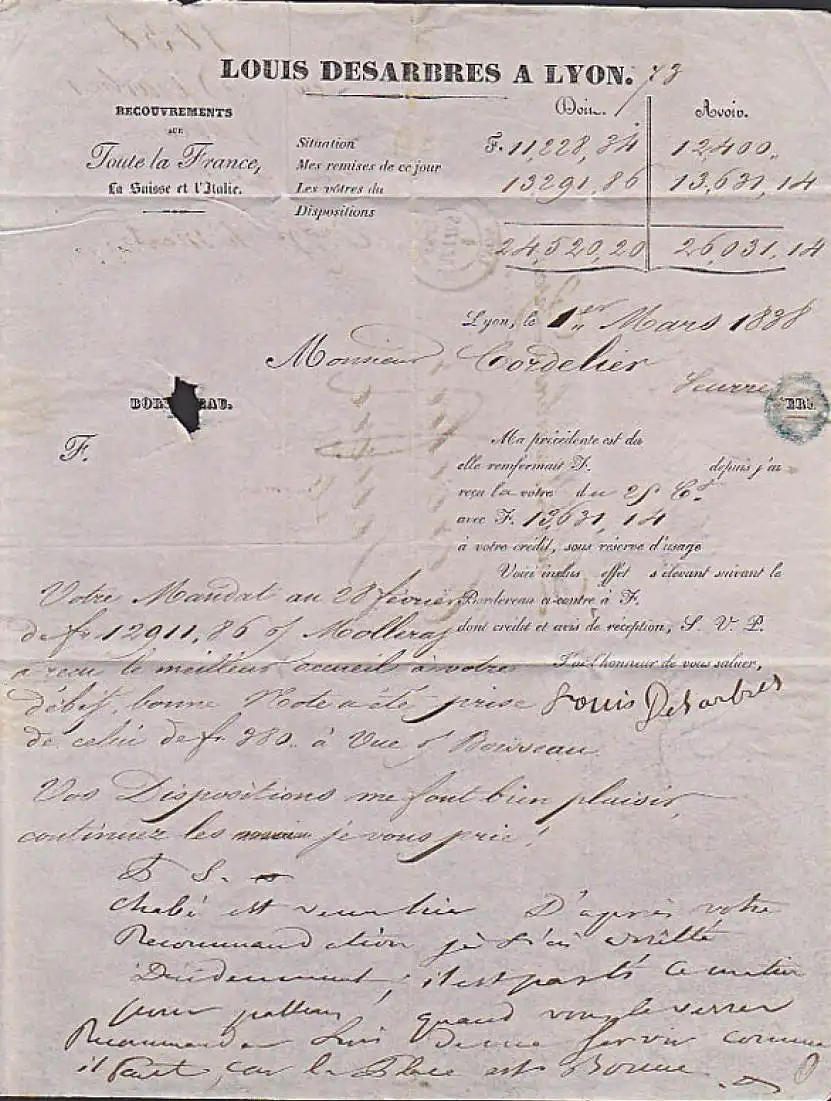 LOUIS DESARBRES A LYON. 73
RECOUVREMENTS
SUR
Toute la France,
La Suisse et l'Italie.
Doit. Avoir.
Situation F. 11,228,34 12,400"
Mes remises de ce jour
Les vôtres du 13291,86 13,631,14
Dispositions
24,520,20 26,031,14
Lyon, le 1er Mars 1838
Monsieur Cordelier
Seurre
BOR EAU.
ERS.
F.
Ma précédente est du
elle renfermait F. depuis j'ai
reçu la vôtre du 25 Ct
avec F. 13,631,14
à votre crédit, sous réserve d'usage
Voici inclus effet s'élevant suivant le
Bordereau ci-contre à F.
dont crédit et avis de réception, S. V. P.
J'ai l'honneur de vous saluer,
Louis Desarbres
Votre Mandat au 28 février
de fr 12911,86 s/ Molleras
a reçu le meilleur accueil à votre
débit, bonne Note a été prise
de celui de fr 380" à Vue s/ Boisseau
Vos Dispositions me font bien plaisir,
continuez les je vous prie!
P S.
est venu hier D'après votre
Recommandation je l'ai arrêté
il est parti ce matin
pour quand vous le verrez
Recommander lui De me servir comme
il faut, car la Place est Bonne